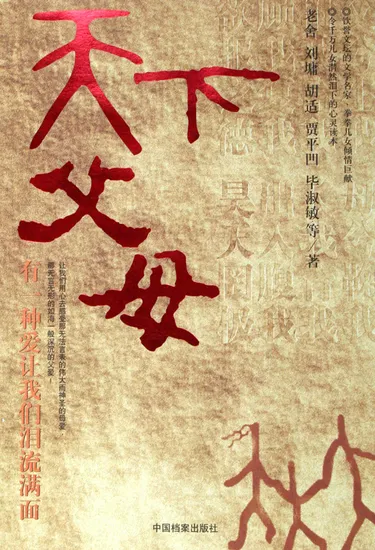 ◎饮誉文坛的文学名家、拳拳儿女倾情巨献
◎令千万儿女潸然泪下的心灵读本
老舍 刘墉 胡适 贾平凹 毕淑敏 等／著
天下
父母
让我们用心去感受那无法言表的伟大而神圣的母爱，
那无言无形的如海一般深沉的父爱！
有一种爱让我们泪流满面
中国档案出版社